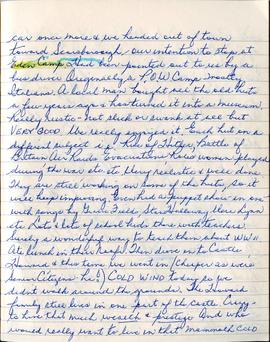 car once more & we headed out of town
toward Scarborough - our intention to stop at
Eden Camp. Had been pointed out to us by a
bus driver. Originally a P.O.W. Camp mostly
Italians. A local man bought all the old huts
a few years ago & has turned it into a museum.
Really rustic - not slick or swank at all but
VERY GOOD. We really enjoyed it. Each hut on a
different subject i.e. Rise of Hitler, Battle of
Britain Air Raids Evacuations Roles women played
during the war etc etc Very realistic & well done
They are still working on some of the huts, so it
will keep improving. Even had a puppet show in one
with songs by Gracie Fields Vera Lynn
etc. Lots & lots of school kids there with teachers
Surely a wonderful way to teach them about WW II
Ate lunch in the Then drove on to Castle
Howard & this time we went in (cheaper as we're
Senior Citizens - he!) COLD WIND today so we
didn't walk around the grounds. The Howard
family still lives in one part of the castle. Crazy -
to have that much wealth & prestige. And who
would really want to live in that MAMMOTH COLD